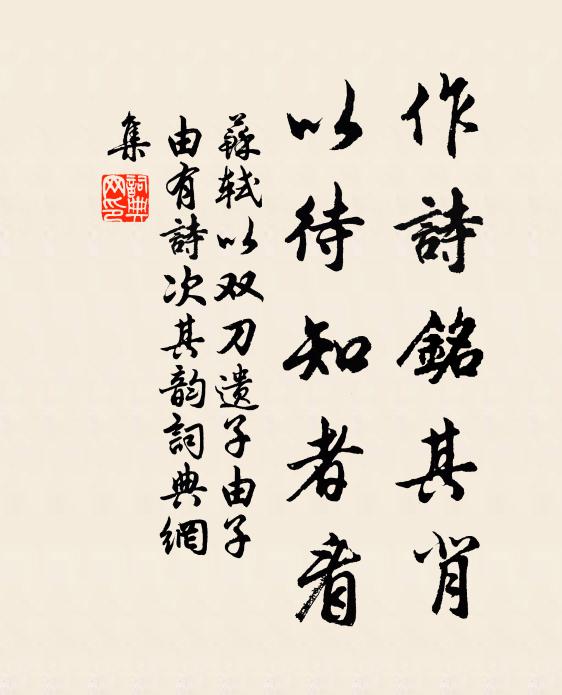 作詩銘其背
以待知者看
蘇軾以双刀遺子由子
由有詩次其韵詞典網
集
詞典
网印